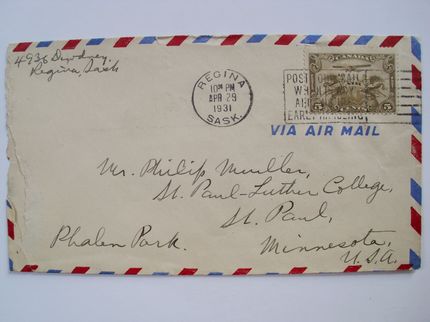 4936 Dewdney.
Regina, Sask
REGINA
10 PM
APR 29
1931
SASK.
CANADA
5 CENTS 5
POST
EARLY
VIA AIR MAIL
Mr. Philip Mueller,
St. Paul-Luther College,
St. Paul,
Phalen Park.
Minnesota,
U.S.A.